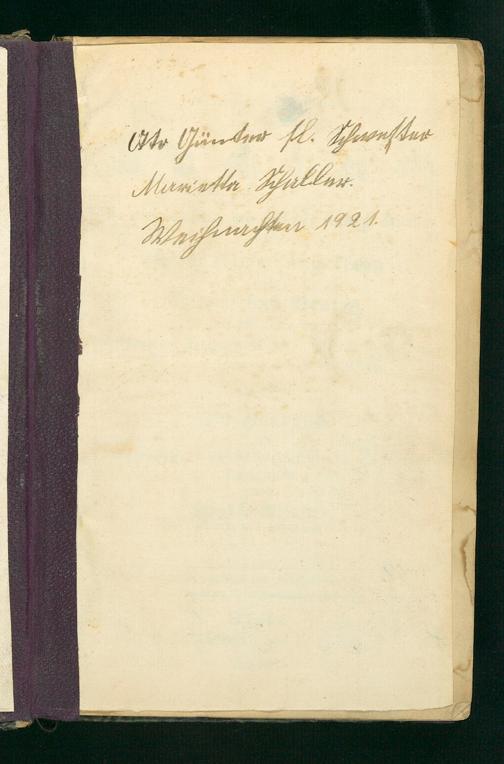 Günter sl. Schwester
Marietta Schaller.
Weihnachten 1921.